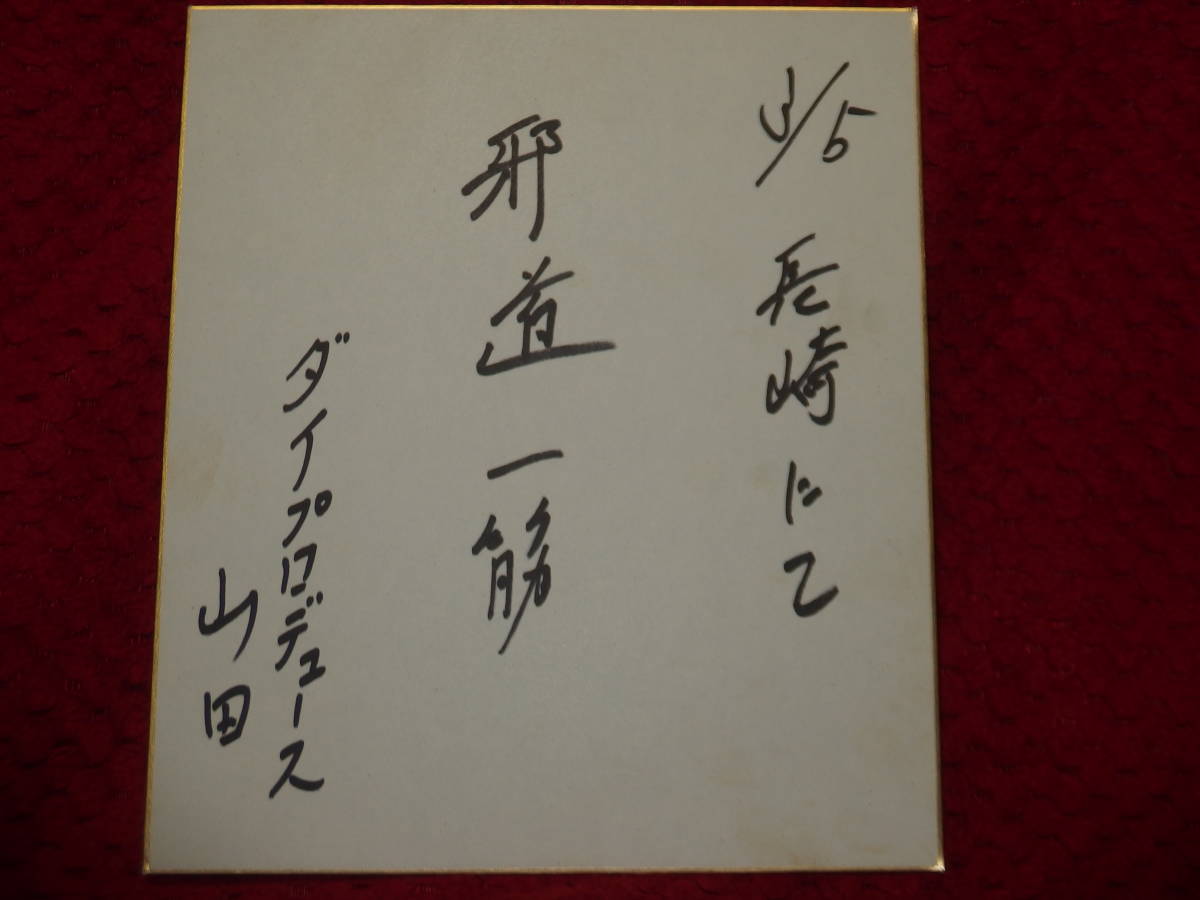 長崎にて
邪道一筋
ダイプロデュース
山田